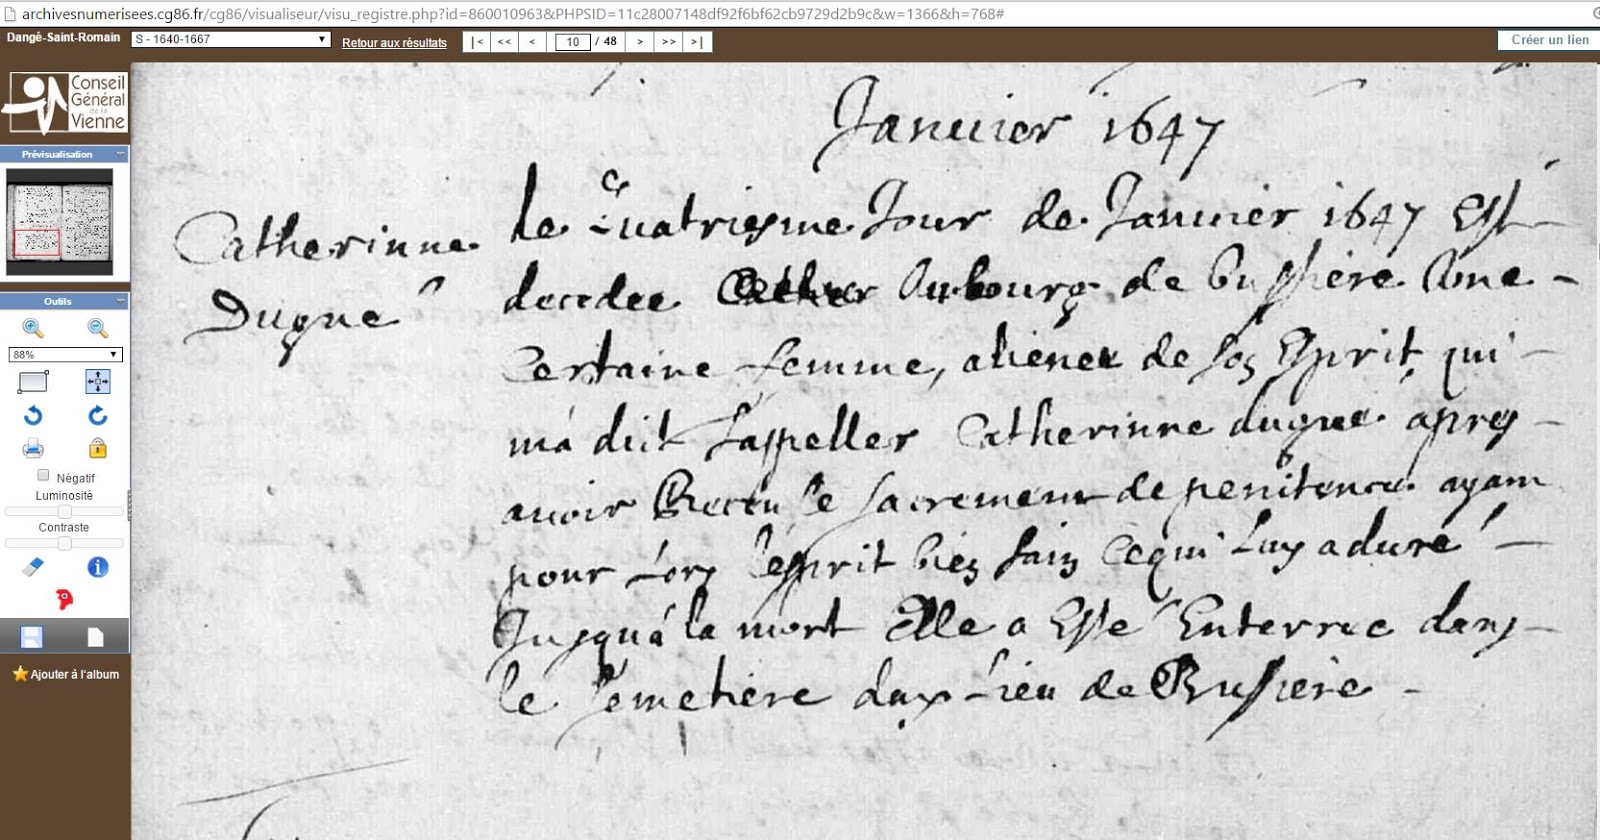 archivesnumerisees.cg86.fr/cg86/visualiseur/visu_registre.php?id=860010963&PHPSID=11c28007148df92f6bf62cb9729d2b9c&w=1366&h=768#
Dangé-Saint-Romain
S - 1640-1667
Retour aux résultats
|< << < 10 / 48 > >> >|
Créer un lien
Conseil
Général
de la
Vienne
Prévisualisation
Outils
88%
Négatif
Luminosité
Contraste
Ajouter à l'album
Januier 1647
Catherinne
Dugué
le quatriesme Jour de Januier 1647 Est
decedee Au bourg de bussiere Une
Certaine femme, alienee de son Esprit qui
m'a dict s'appeller Catherinne dugué apres
auoir Receu le sacrement de penitence ayant
pour lors l'esprit bien sain Ce qui luy a duré
Jusqu'a la mort Elle a Esté Enterree dans
le Cemetiere dud lieu de Bussiere